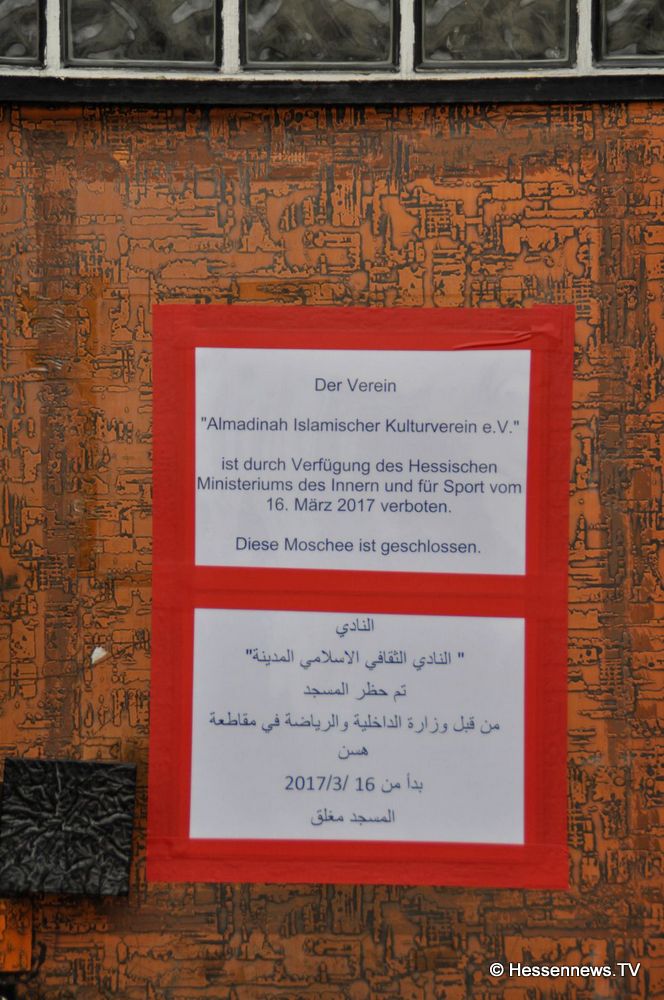 Der Verein
"Almadinah Islamischer Kulturverein e.V."
ist durch Verfügung des Hessischen
Ministeriums des Innern und für Sport vom
16. März 2017 verboten.
Diese Moschee ist geschlossen.
النادي
" النادي الثقافي الاسلامي المدينة"
تم حظر المسجد
من قبل وزارة الداخلية والرياضة في مقاطعة
هسن
بدأ من 16 /3/2017
المسجد مغلق
© Hessennews.TV